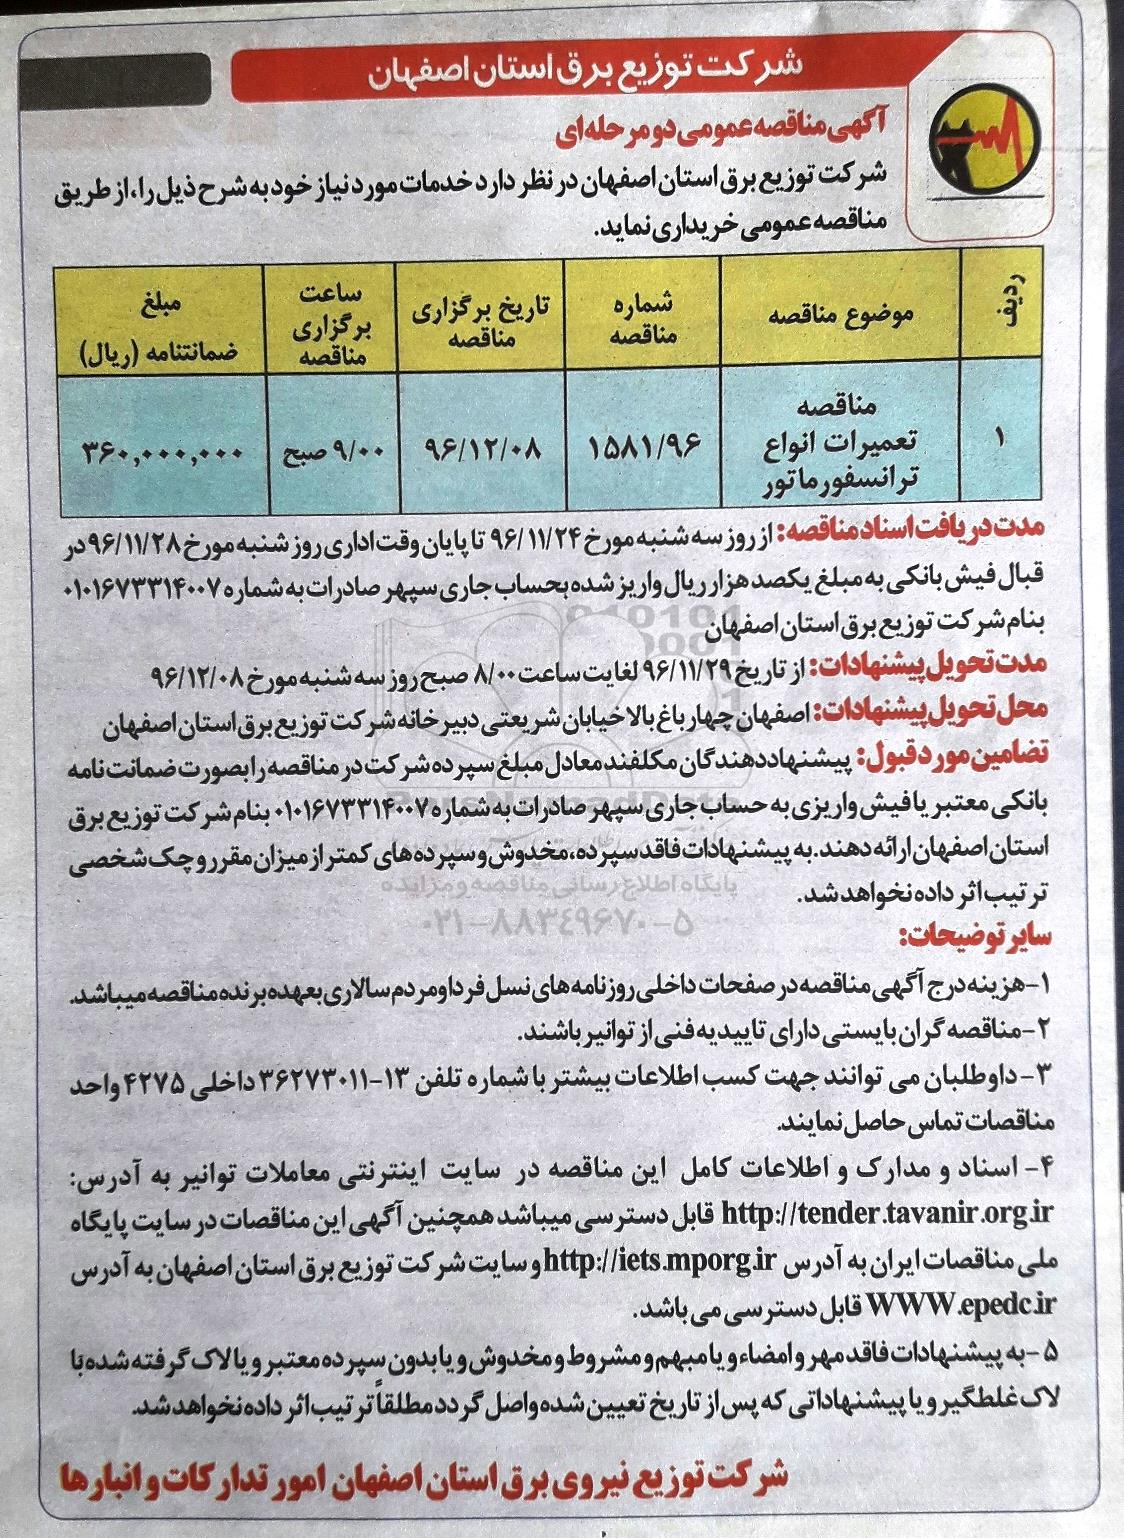 شرکت توزیع برق استان اصفهان
آگهی مناقصه عمومی دو مرحله ای
شرکت توزیع برق استان اصفهان در نظر دارد خدمات مورد نیاز خود به شرح ذیل را، از طریق
مناقصه عمومی خریداری نماید.
ردیف
موضوع مناقصه
شماره
مناقصه
تاریخ برگزاری
مناقصه
ساعت
برگزاری
مناقصه
مبلغ
ضمانتنامه (ریال)
۱
مناقصه
تعمیرات انواع
ترانسفورماتور
۱۵۸۱/۹۶
۹۶/۱۲/۰۸
۹/۰۰ صبح
۳۶۰,۰۰۰,۰۰۰
مدت دریافت اسناد مناقصه: از روز سه شنبه مورخ ۹۶/۱۱/۲۴ تا پایان وقت اداری روز شنبه مورخ ۹۶/۱۱/۲۸ در
قبال فیش بانکی به مبلغ یکصد هزار ریال واریز شده بحساب جاری سپهر صادرات به شماره ۰۱۰۱۶۷۳۳۱۴۰۰۷
بنام شرکت توزیع برق استان اصفهان
مدت تحویل پیشنهادات: از تاریخ ۹۶/۱۱/۲۹ لغایت ساعت ۸/۰۰ صبح روز سه شنبه مورخ ۹۶/۱۲/۰۸
محل تحویل پیشنهادات: اصفهان چهارباغ بالا خیابان شریعتی دبیرخانه شرکت توزیع برق استان اصفهان
تضامین مورد قبول: پیشنهاد دهندگان مکلفند معادل مبلغ سپرده شرکت در مناقصه را بصورت ضمانت نامه
بانکی معتبر یا فیش واریزی به حساب جاری سپهر صادرات به شماره ۰۱۰۱۶۷۳۳۱۴۰۰۷ بنام شرکت توزیع برق
استان اصفهان ارائه دهند. به پیشنهادات فاقد سپرده، مخدوش و سپرده های کمتر از میزان مقرر و چک شخصی
ترتیب اثر داده نخواهد شد.
پایگاه اطلاع رسانی مناقصه و مزایده
۰۲۱-۸۸۳۴۹۶۷۰-۵
سایر توضیحات:
۱-هزینه درج آگهی مناقصه در صفحات داخلی روزنامه های نسل فردا و مردم سالاری بعهده برنده مناقصه میباشد.
۲-مناقصه گران بایستی دارای تاییدیه فنی از توانیر باشند.
۳- داوطلبان می توانند جهت کسب اطلاعات بیشتر با شماره تلفن ۱۳-۳۶۲۷۳۰۱۱ داخلی ۴۲۷۵ واحد
مناقصات تماس حاصل نمایند.
۴- اسناد و مدارک و اطلاعات کامل این مناقصه در سایت اینترنتی معاملات توانیر به آدرس:
http://tender.tavanir.org.ir قابل دسترسی میباشد همچنین آگهی این مناقصات در سایت پایگاه
ملی مناقصات ایران به آدرس http://iets.mporg.ir و سایت شرکت توزیع برق استان اصفهان به آدرس
WWW.epedc.ir قابل دسترسی می باشد.
۵-به پیشنهادات فاقد مهر و امضاء و یا مبهم و مشروط و مخدوش و یا بدون سپرده معتبر و یا لاک گرفته شده با
لاک غلطگیر و یا پیشنهاداتی که پس از تاریخ تعیین شده واصل گردد مطلقاً ترتیب اثر داده نخواهد شد.
شرکت توزیع نیروی برق استان اصفهان امور تدارکات و انبارها